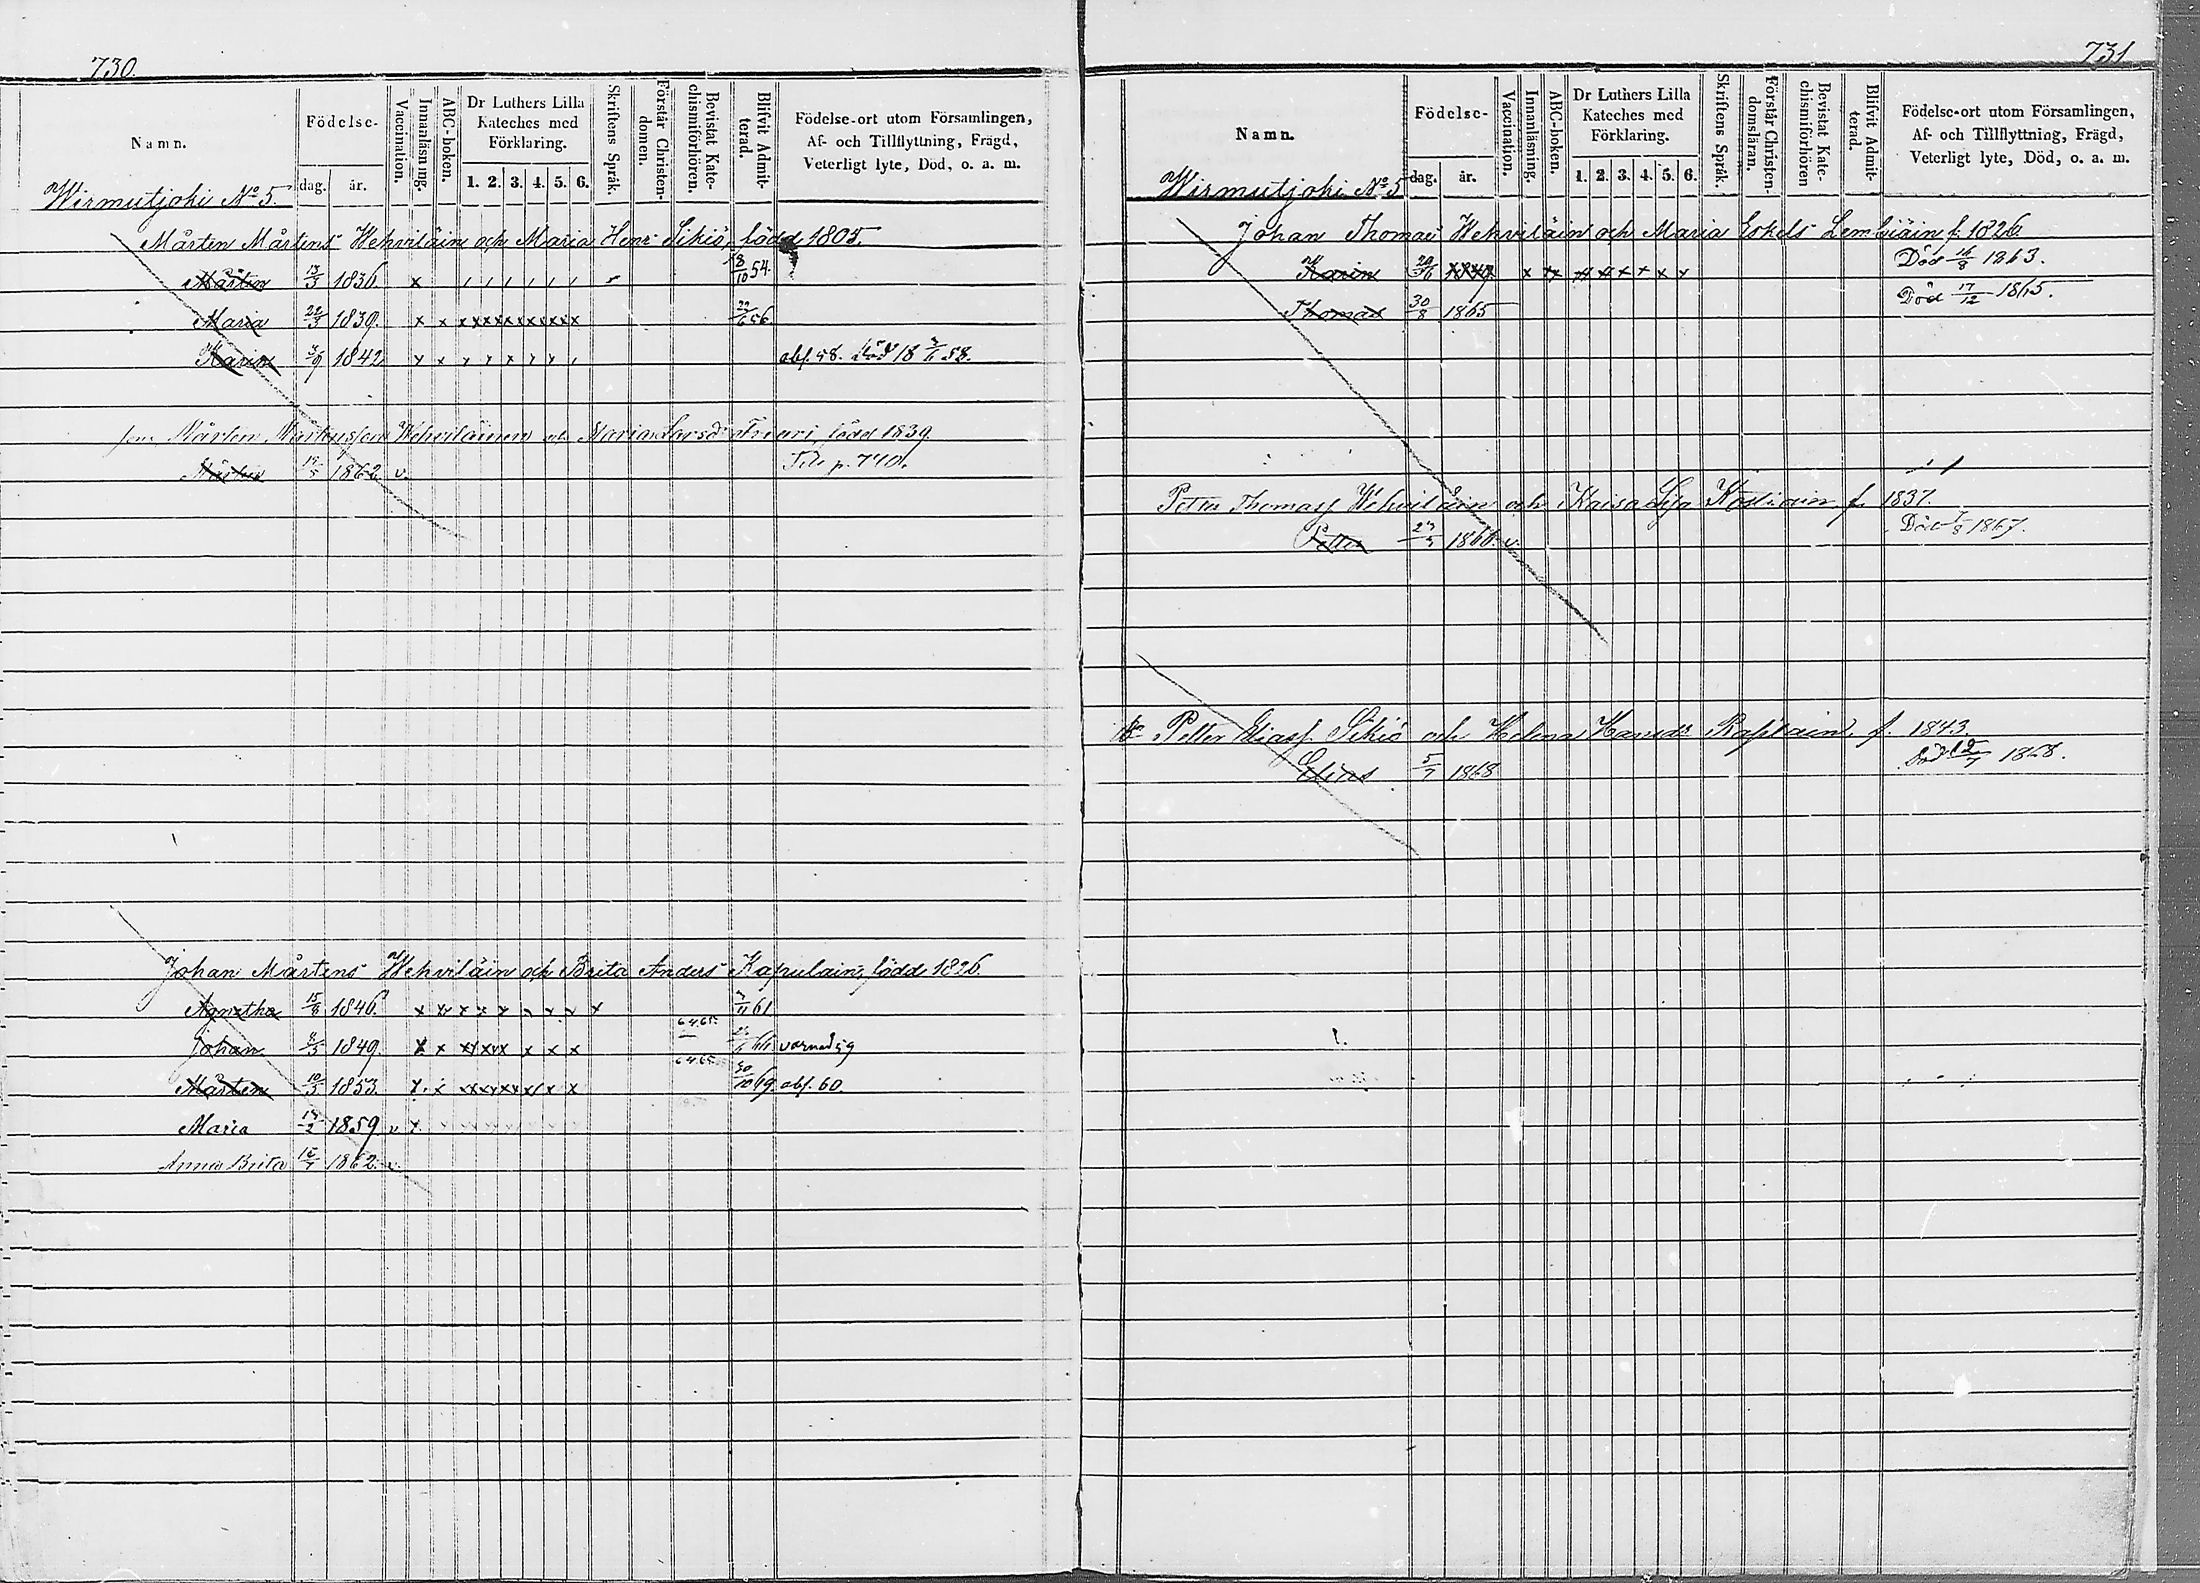 730.
Namn.
Födelse-
dag. år.
Vaccination.
Innanläsning.
ABC-boken.
Dr Luthers Lilla Kateches med Förklaring.
1. 2. 3. 4. 5. 6.
Skriftens Språk.
Förstår Christendomen.
Bevistat Katechismiförhören.
Blifvit Admitterad.
Födelse-ort utom Församlingen,
Af- och Tillflyttning, Frägd,
Veterligt lyte, Död, o. a. m.
Wirmutjoki No 5.
Mårten Mårtens Wehviläin och Maria Henr Sikiö, född 1805.
Mårten 13/3 1836. x 18/10 54.
Maria 22/3 1839. x x x x x x x x x x x
Karin 1842 abs. 58. död 58.
Mårten Wehviläinen och Maria född 1839.
Mårten 1862. v. Till p. 740.
Johan Mårtens Wehviläin och Brita Anders Kapulain, född 1826.
Agnetha 15/8 1846. x x x x x 61
Johan 1849. x x x x x x x x 64.65. varnad
Mårten 10/3 1853. 64.65. 30/10 69. abs. 60.
Maria 1859 v x
Anna Brita 1862. v.
731
Namn.
Födelse-
dag. år.
Vaccination.
Innanläsning.
ABC-boken.
Dr Luthers Lilla Kateches med Förklaring.
1. 2. 3. 4. 5. 6.
Skriftens Språk.
Förstår Christendomsläran.
Bevistat Katechismiförhören
Blifvit Admitterad.
Födelse-ort utom Församlingen,
Af- och Tillflyttning, Frägd,
Veterligt lyte, Död, o. a. m.
Wirmutjoki No 5
Johan Thomas Wehviläin och Maria Eskels Lembiäin f. 1826
Karin x x x x x x x x Död 16/8 1863.
Thomas 30/8 1865 Död 17/12 1865.
Petter Thomass Wehviläin och Kaisa Kostiain f. 1837.
Petter 1866. v. Död 1867.
Petter Eliass. Sikiö och Helena Hansdr f. 1843.
Elias 5/7 1868 Död 12/7 1868.